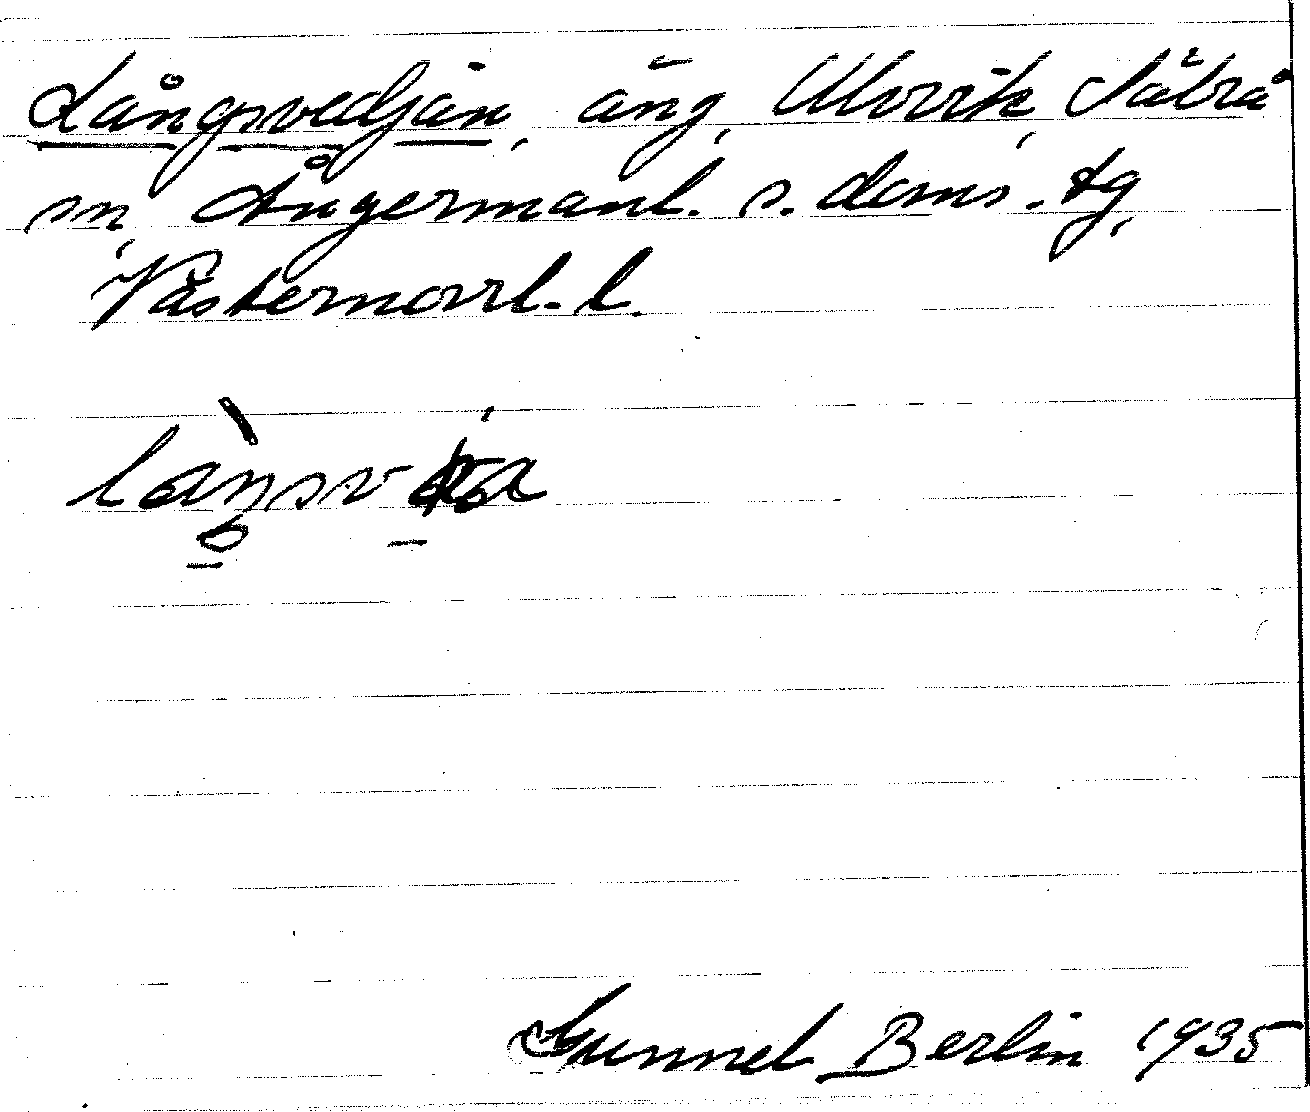 Långsvedjan, äng, Ulvvik, Säbrå
sn, Ångermanl. s. doms. tg,
Västernorrl. l.
Gunnel Berlin 1935